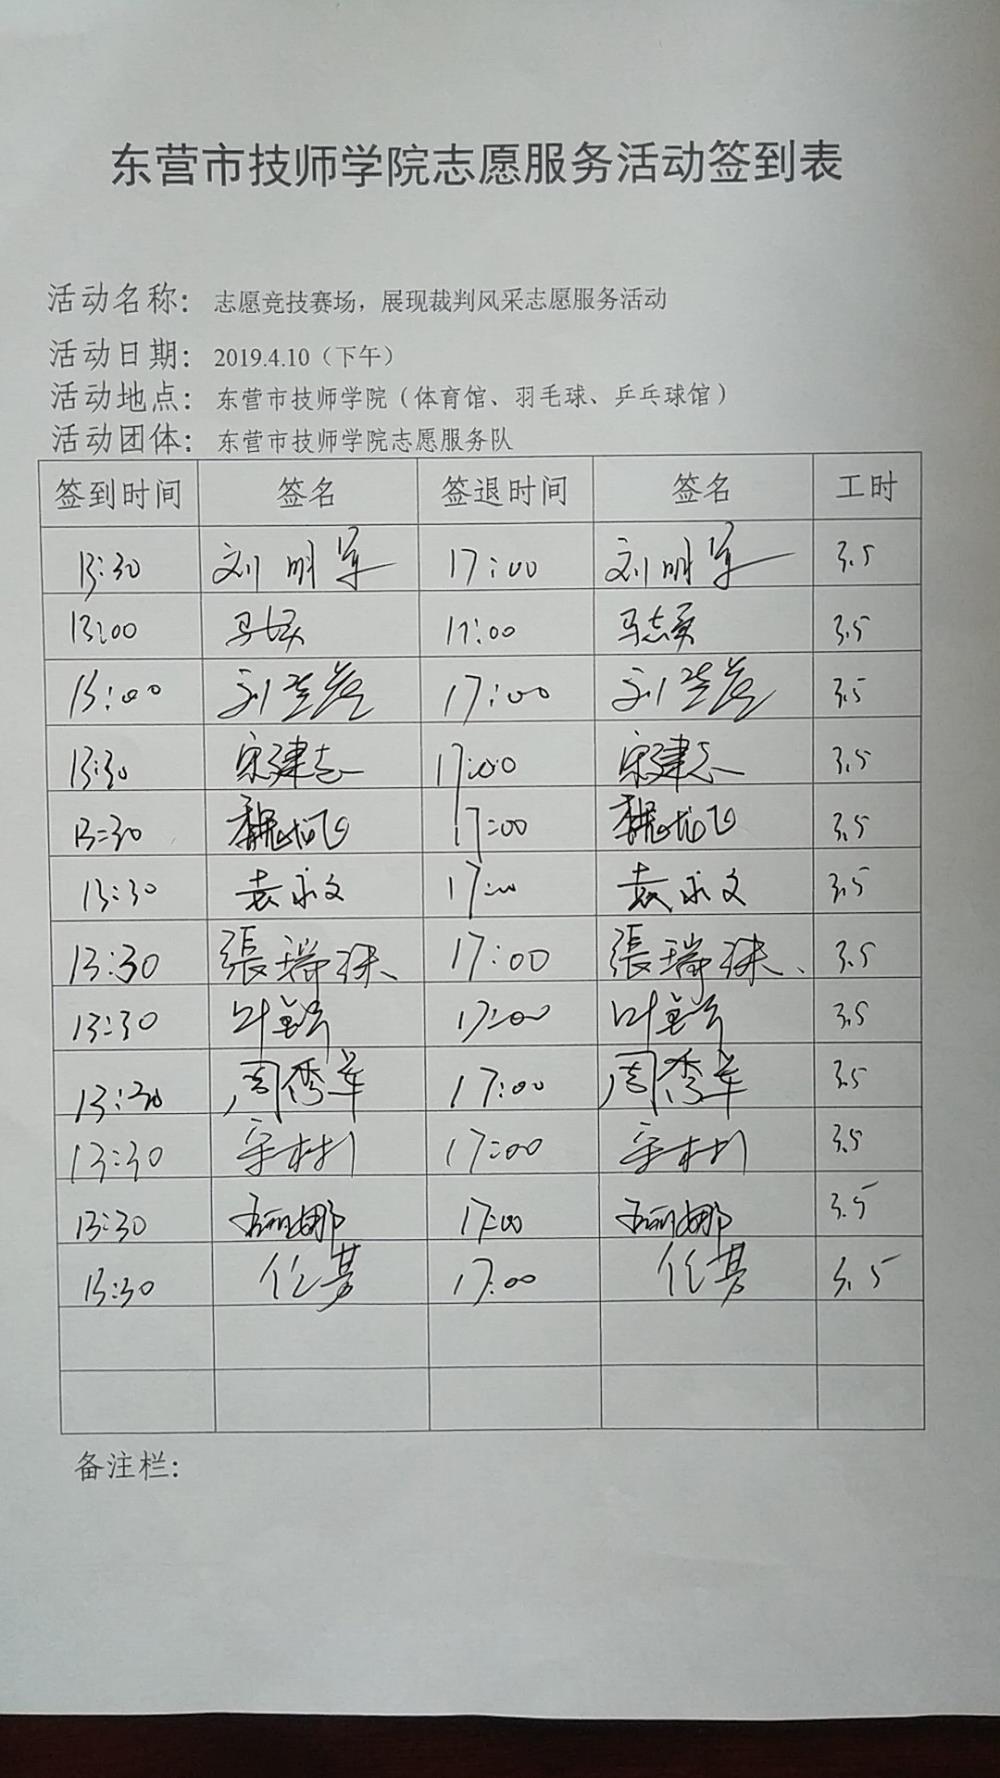 东营市技师学院志愿服务活动签到表
活动名称：志愿竞技赛场，展现裁判风采志愿服务活动
活动日期：2019.4.10（下午）
活动地点：东营市技师学院（体育馆、羽毛球、乒乓球馆）
活动团体：东营市技师学院志愿服务队
签到时间 签名 签退时间 签名 工时
13:30 刘明军 17:00 刘明军 3.5
13:00 马志英 17:00 马志英 3.5
13:00 刘 17:00 刘 3.5
13:30 宋建志 17:00 宋建志 3.5
13:30 魏龙飞 17:00 魏龙飞 3.5
13:30 袁永文 17:00 袁永文 3.5
13:30 張瑞珠 17:00 張瑞珠 3.5
13:30 叶 17:00 叶 3.5
13:30 周秀军 17:00 周秀军 3.5
13:30 宋彬 17:00 宋彬 3.5
13:30 丽娜 17:00 丽娜 3.5
13:30 任芳 17:00 任芳 3.5
备注栏：